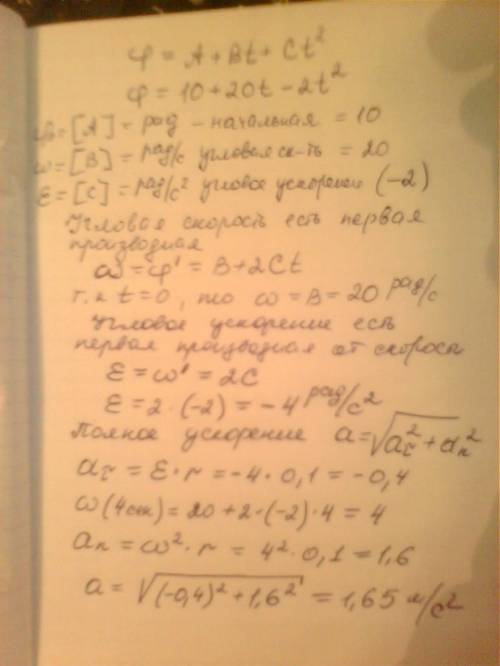 φ = A + Bt + Ct²
φ = 10 + 20t - 2t²
= [A] = рад - начальная = 10
ω = [B] = рад/с угловая ск-ть = 20
ε = [C] = рад/с² угловое ускорение (-2)
Угловая скорость есть первая
производная
ω = φ' = B + 2Ct
т.к t = 0, то ω = B = 20 рад/с
Угловое ускорение есть
первая производная от скорости
ε = ω' = 2C
ε = 2 · (-2) = -4 рад/с²
Полное ускорение a = √aτ² + an²
aτ = ε · r = -4 · 0,1 = -0,4
ω(4сек) = 20 + 2 · (-2) · 4 = 4
an = ω² · r = 4² · 0,1 = 1,6
a = √(-0,4)² + 1,6² = 1,65 м/с²